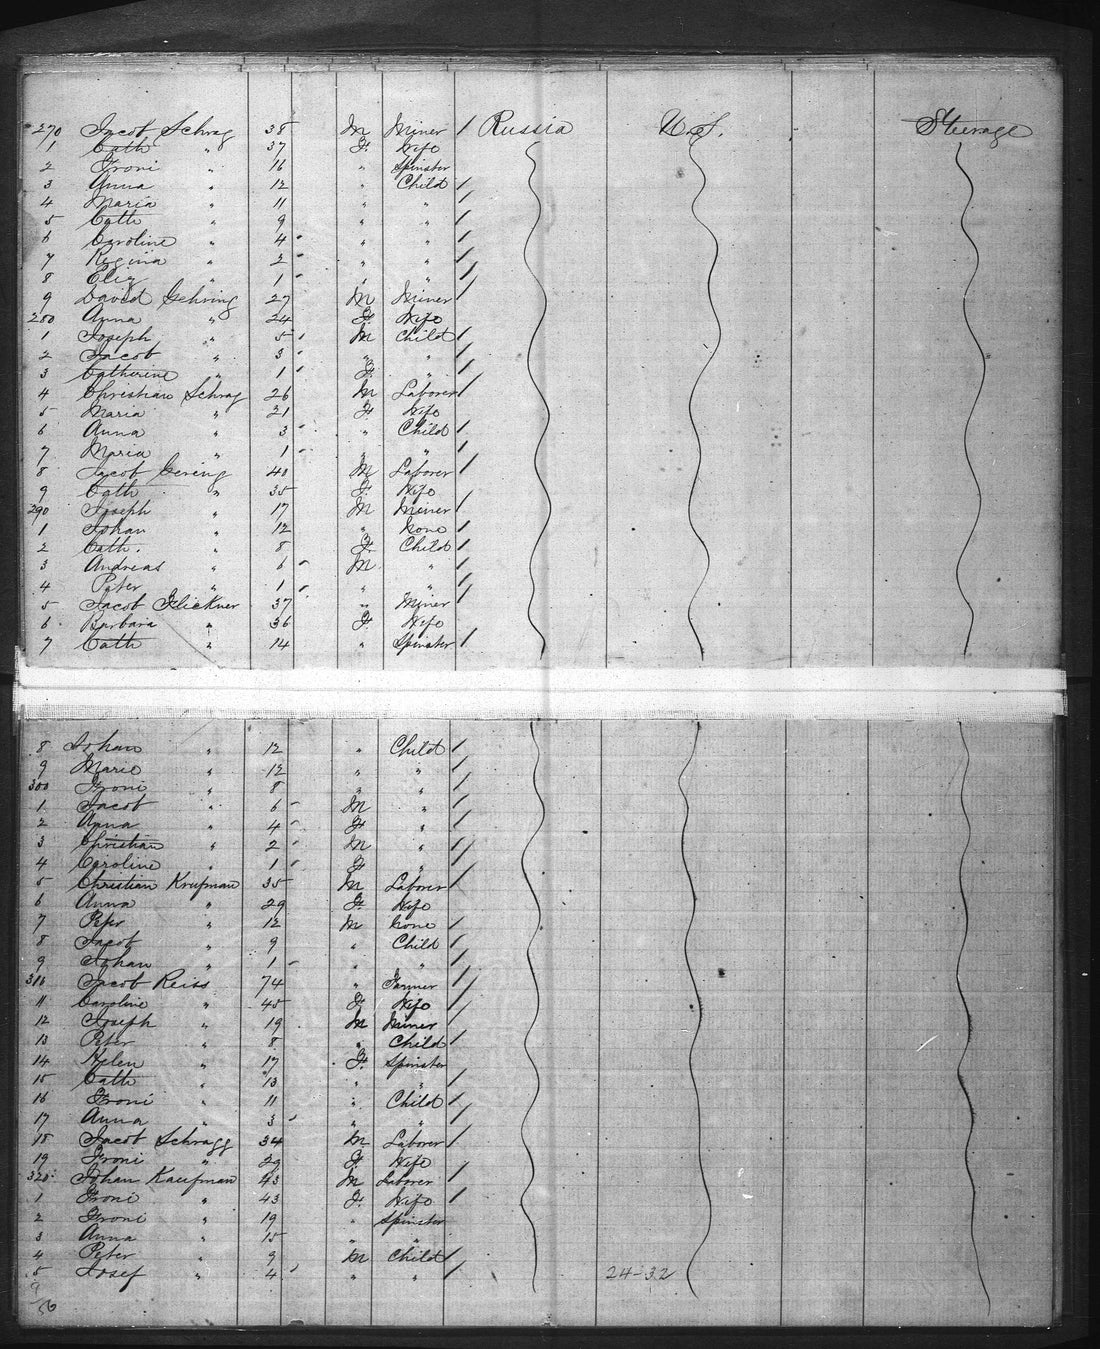 270 Jacob Schrag 38 M Miner / Russia U.S. Steerage
1 Cath " 37 F. Wife
2 Froni " 16 " Spinster
3 Anna " 12 " Child /
4 Maria " 11 " " /
5 Cath " 9 " " /
6 Caroline " 4 " " /
7 Regina " 2 " " /
8 Eliz " 1 " " /
9 David Gehring 27 M Miner /
280 Anna " 24 F Wife
1 Joseph " 5 M Child /
2 Jacob " 3 " " /
3 Catherine " 1 F. " /
4 Christian Schrag 26 M Laborer /
5 Maria " 21 F Wife
6 Anna " 3 " Child /
7 Maria " 1 " " /
8 Jacob Gering 40 M Laborer /
9 Cath " 35 F. Wife
290 Joseph " 17 M Miner /
1 Johan " 12 " None /
2 Cath. " 8 F. Child /
3 Andreas " 6 M " /
4 Peter " 1 " " /
5 Jacob Flickner 37 " Miner /
6 Barbara " 36 F. Wife
7 Cath " 14 " Spinster /
8 Johan " 12 " Child /
9 Marie " 12 " " /
300 Froni " 8 " " /
1 Jacob " 6 M " /
2 Anna " 4 F " /
3 Christian " 2 M " /
4 Caroline " 1 F " /
5 Christian Krufman 35 M Laborer /
6 Anna " 29 F. Wife
7 Peter " 12 M None /
8 Jacob " 9 " Child /
9 Johan " 1 " " /
310 Jacob Reiss 74 " Farmer /
11 Caroline " 45 F Wife /
12 Joseph " 19 M Miner /
13 Peter " 8 " Child /
14 Helen " 17 F. Spinster
15 Cath " 13 " " /
16 Froni " 11 " Child /
17 Anna " 3 " " /
18 Jacob Schragg 34 M Laborer /
19 Froni " 29 F. Wife
320 Johan Kaufman 43 M Laborer /
1 Froni " 43 F. Wife /
2 Froni " 19 " Spinster
3 Anna " 15 " "
4 Peter " 9 M Child /
5 Josef " 4 " " / 24-32
56